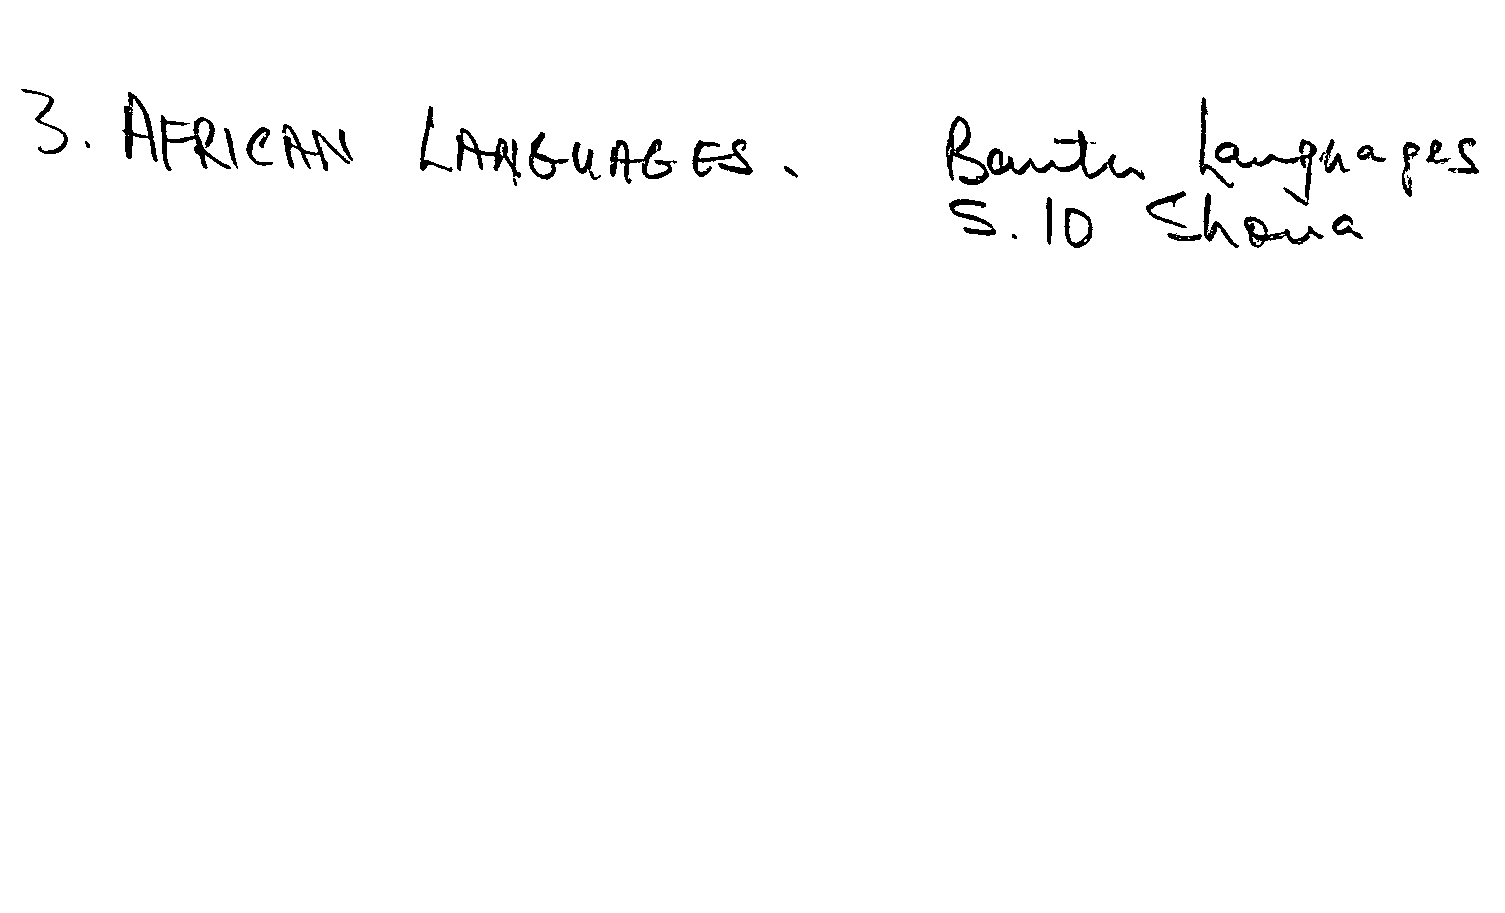 3. AFRICAN LANGUAGES. Bantu Languages
S.10 Shona